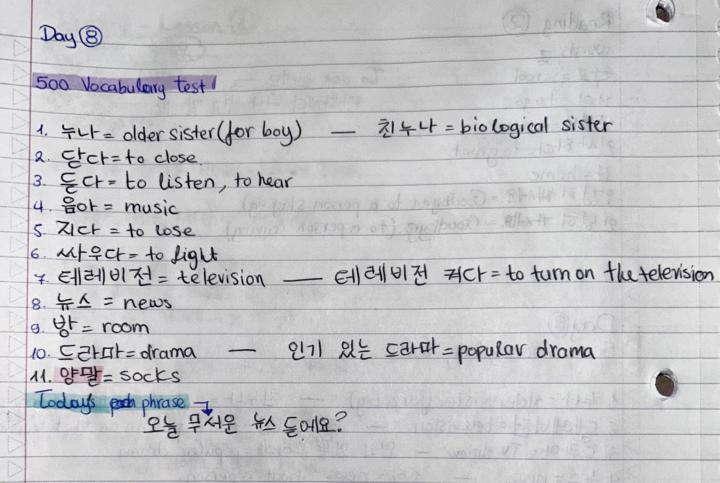 Day ⑧
500 Vocabulary test!
1. 누나 = older sister (for boy) — 친누나 = biological sister
2. 닫다 = to close.
3. 듣다 = to listen, to hear
4. 음아 = music
5. 지다 = to lose
6. 싸우다 = to fight
7. 테레비전 = television — 테레비전 켜다 = to turn on the television
8. 뉴스 = news
9. 방 = room
10. 드라마 = drama — 인기 있는 드라마 = popular drama
11. 양말 = socks
Today's phrase →
오늘 무서운 뉴스 듣에요?